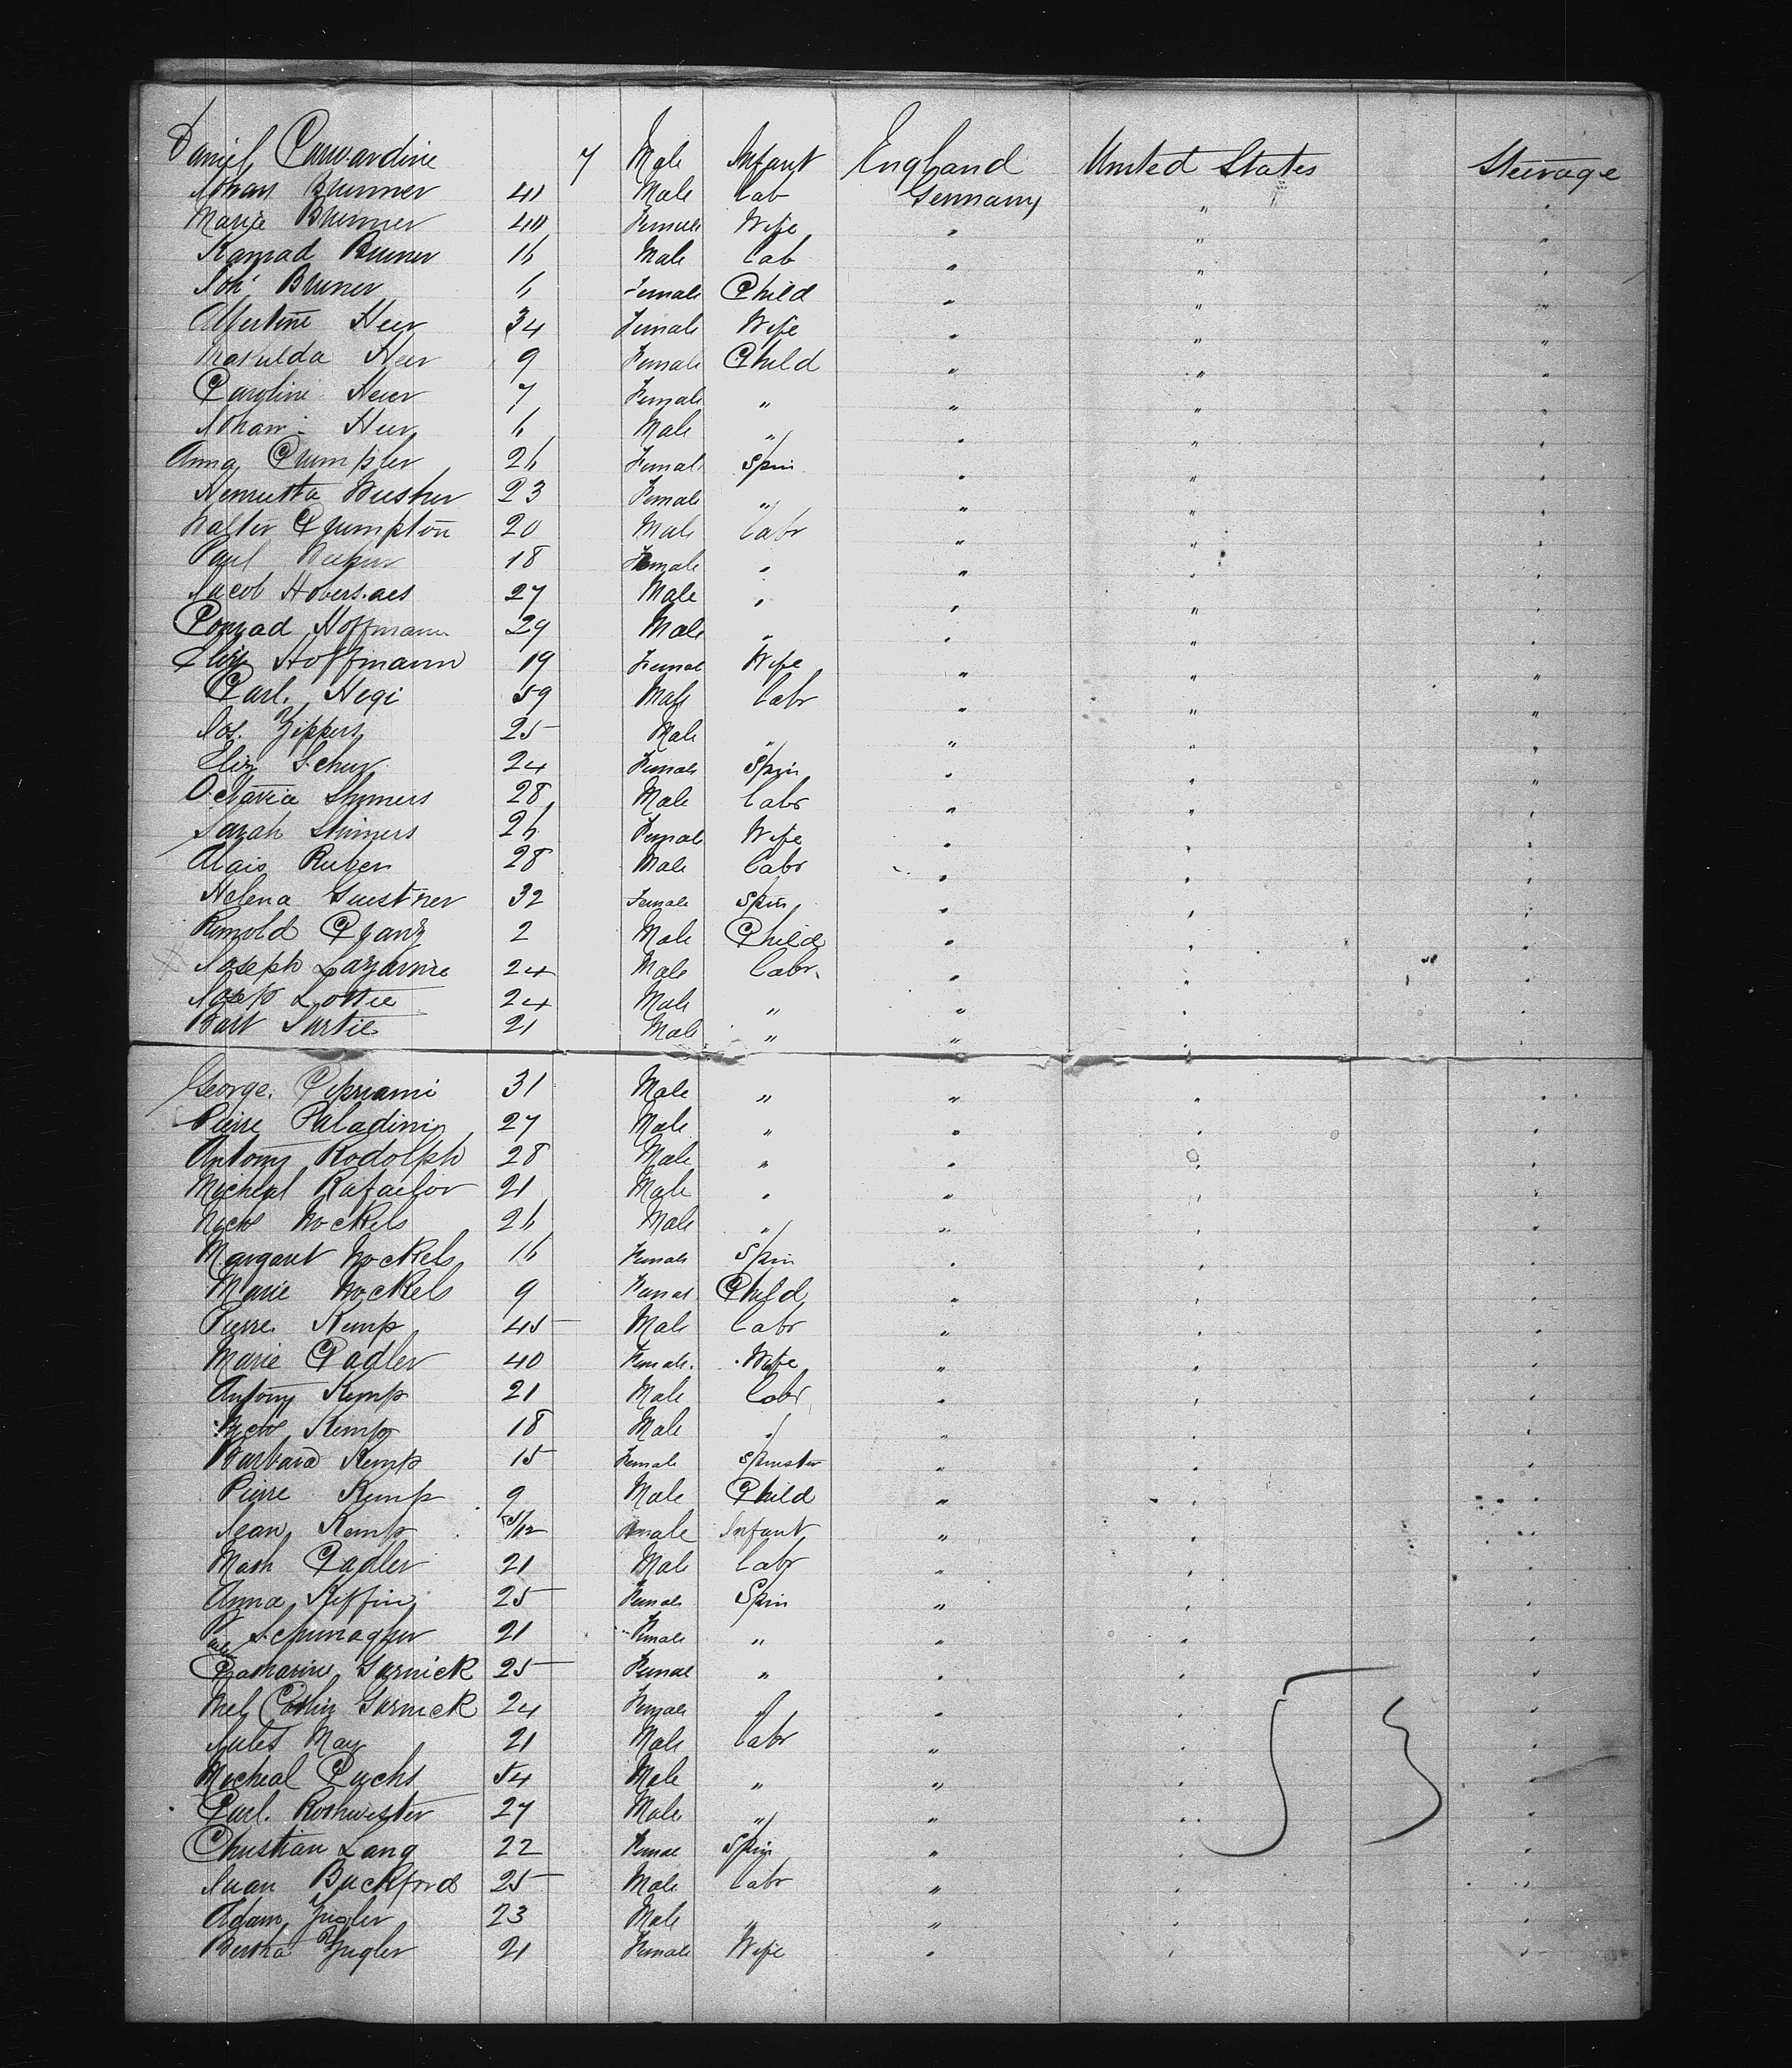 Daniel Carwardine 7 Male Infant England United States Steerage
Johan Brunner 41 Male Lab Germany " "
Marie Brunner 40 Female Wife " " "
Konrad Brunner 16 Male Lab " " "
Joh Bruner 6 Female Child " " "
Albertine Heer 34 Female Wife " " "
Matulda Heer 9 Female Child " " "
Caroline Heer 7 Female " " " "
Johan Heer 6 Male " " " "
Anna Crumpler 26 Female Spin " " "
Henrietta 23 Female " " " "
Walter Crumpton 20 Male Labr " " "
Paul 18 Female " " " "
Jacob 27 Male " " " "
Conrad Hoffmann 29 Male " " " "
Eliz Hoffmann 19 Female Wife " " "
Carl. Hegi 59 Male Labr " " "
Jos. Zippers 25 Male " " " "
Eliz Schur 24 Female Spin " " "
Octavia Shimers 28 Male Labr " " "
Sarah Shimers 26 Female Wife " " "
Alais Ruber 28 Male Labr " " "
Helena Guestner 32 Female Spin " " "
Rinold 2 Male Child " " "
Joseph Lazarnie 24 Male Labr. " " "
Josep Lottie 24 Male " " " "
Bart Sartie 21 Male " " " "
George. Cipriani 31 Male " " " "
Pierre Paladini 27 Male " " " "
Antony Rodolph 28 Male " " " "
Micheal Rafaelov 21 Male " " " "
Nick Nockels 26 Male " " " "
Margaret Nockels 16 Female Spin " " "
Marie Nockels 9 Femal Child " " "
Pierre. Kemp 45 Male Labr " " "
Marie Cadler 40 Female. Wife " " "
Antony Kemp 21 Male Labr " " "
Nick Kemp 18 Male " " " "
Barbara Kemp 15 Female Spinster " " "
Pierre Kemp 9 Male Child " " "
Jean Kemp /12 male Infant " " "
Math Cadler 21 Male Labr " " "
Anna Kiffin 25 Female Spin " " "
Schumagher 21 Female " " " "
Catharine Garnick 25 Femal " " " "
Garnick 24 Female " " " "
Jules May 21 Male Labr " " "
Micheal Cuchs 54 Male " " " "
Carl. Rothwester 27 Male " " " "
Christian Lang 22 Femal Spin " " "
Juan Buckford 25 Male Labr " " "
Adam Zigler 23 Male " " " "
Bertha Zugler 21 Female Wife " " "
53